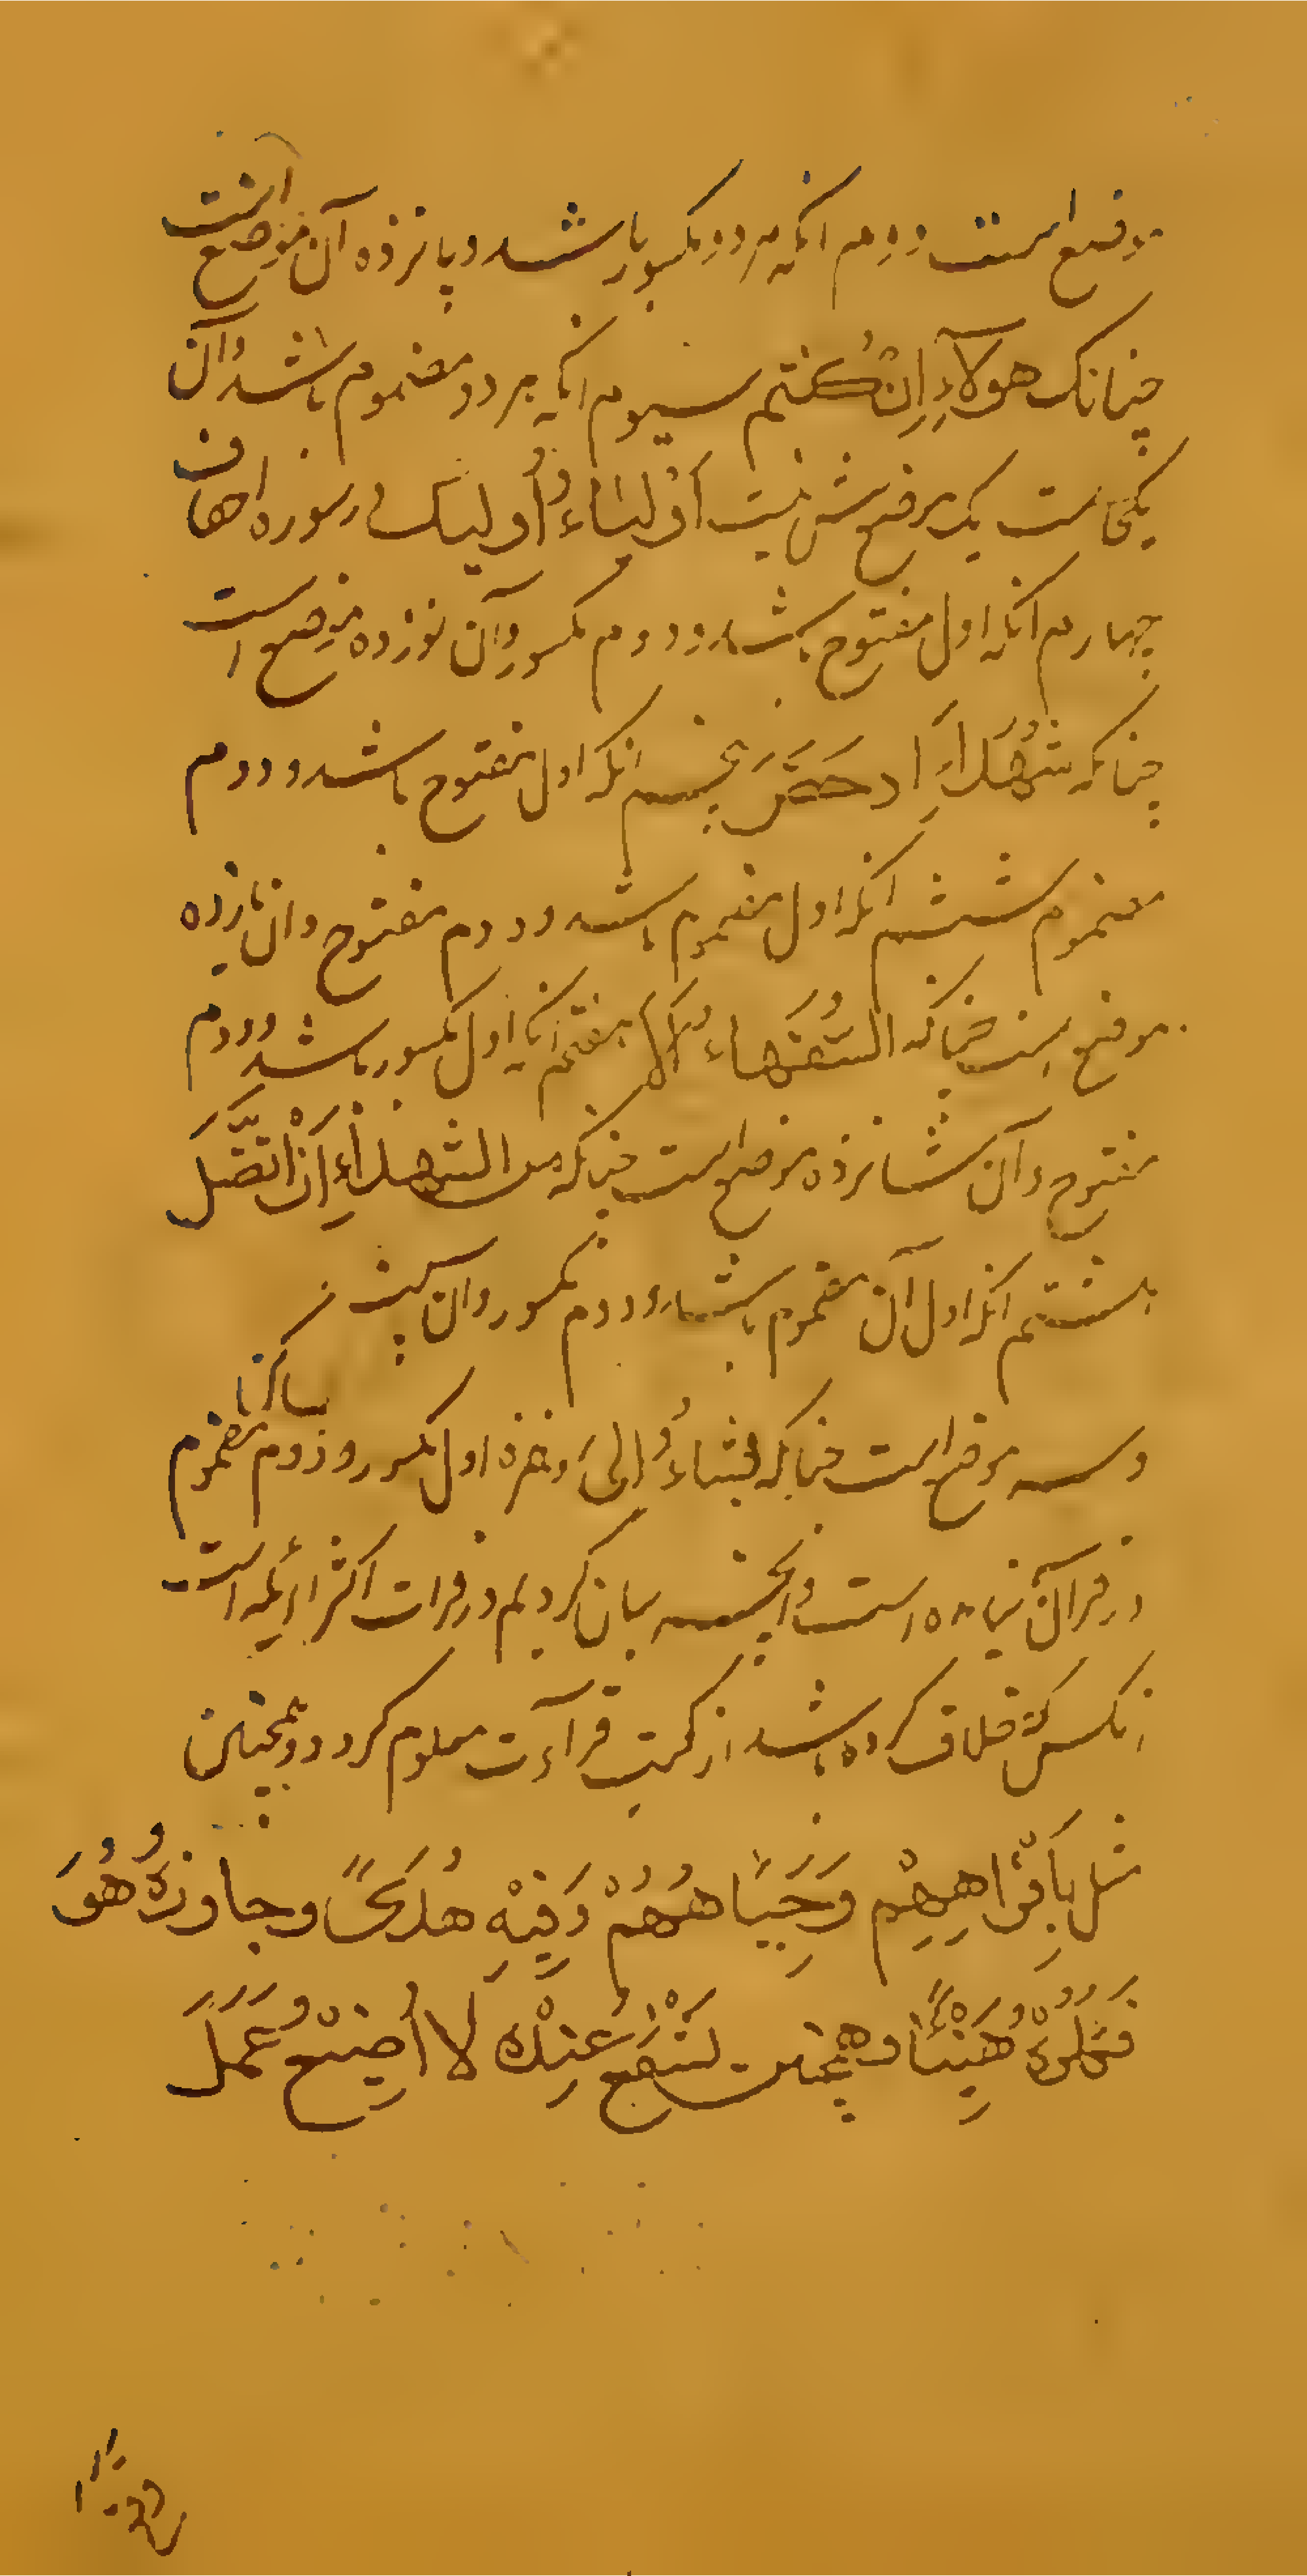 موضع است دوم انکه هر دو مکسور باشد و پانزده آن موضع است
چنانک هولآءِ اِن کُنتم سیوم انکه هر دو مضموم باشد و آن
یکجاست یک موضع بیش نیست اَولیاءُ اُولیک در سوره احقاف
چهارم انکه اول مفتوح باشد و دوم مکسور و آن نوزده موضع است
چنانکه شُهَداءَ اِذ حَضَرَ پنجم انکه اول مفتوح باشد و دوم
مضموم ششم انکه اول مضموم باشد و دوم مفتوح و ان یازده
موضع است چنانکه السُّفَهاءُ اَلا هفتم انکه اول مکسور باشد و دوم
مفتوح و آن شانزده موضع است چنانکه من الشهداءِ اَنْ تَضِلَّ
هشتم انکه اول آن مضموم باشد و دوم مکسور و ان بیست
و سه موضع است چنانکه یشاءُ اِلیَ و همزه اول مکسور و دوم مضموم
در قرآن نیامده است و اینچه بیان کردیم در قرات اکثر ایمه است
انکس که خلاف کرده باشد از کتب قرآءت معلوم کردد و همچنین
مثل بِاَفْواهِهِمْ وَ جِباهُهُمْ وَ فِیْهِ هُدَیً وَ جاوزَهُ هُوَ
فَکُلُوْهُ هَنِیْئًا و همچنین نَنْفَعُ عِنْدَهُ لا اُضِیْعُ عَمَلَ